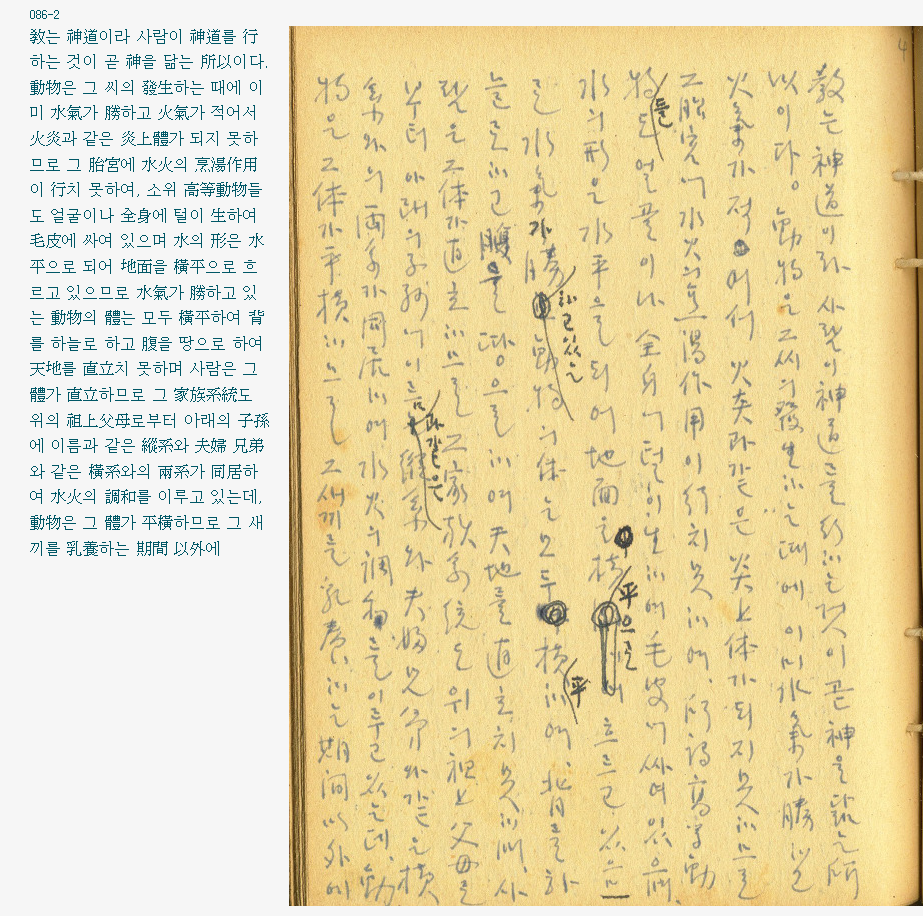 086-2
敎는 神道이라 사람이 神道를 行
하는 것이 곧 神을 닮는 所以이다.
動物은 그 씨의 發生하는 때에 이
미 水氣가 勝하고 火氣가 적어서
火炎과 같은 炎上體가 되지 못하
므로 그 胎宮에 水火의 烹湯作用
이 行치 못하여, 소위 高等動物들
도 얼굴이나 全身에 털이 生하여
毛皮에 싸여 있으며 水의 形은 水
平으로 되어 地面을 橫平으로 흐
르고 있으므로 水氣가 勝하고 있
는 動物의 體는 모두 橫平하여 背
를 하늘로 하고 腹을 땅으로 하여
天地를 直立치 못하며 사람은 그
體가 直立하므로 그 家族系統도
위의 祖上父母로부터 아래의 子孫
에 이름과 같은 縱系와 夫婦 兄弟
와 같은 橫系와의 兩系가 同居하
여 水火의 調和를 이루고 있는데,
動物은 그 體가 平橫하므로 그 새
끼를 乳養하는 期間 以外에
4
敎는 神道이라 사람이 神道를 行하는 것이 곧 神을 닮는 所
以이다。 動物은 그 씨의 發生하는 때에 이미 水氣가 勝하고
火氣가 적어서 火炎과 같은 炎上体가 되지 못하므로
그 胎宮에 水火의 烹湯作用이 行치 못하여, 所謂 高等動
物들도 얼골이나 全身에 털이 生하여 毛皮에 싸여 있으며,
水의 形은 水平으로 되여 地面을 橫平으로 흐르고 있으므
로 水氣가 勝하고 있는 動物의 体는 모두 橫平하여, 背를 하
늘로 하고 腹을 땅으로 하여 天地를 直立치 못하며, 사
람은 그 体가 直立하므로 그 家族系統도 위의 祖上父母로
부터 아래의 子孫에 이름과 같은 縱系와 夫婦 兄弟와 같은 橫
系와의 両系가 同居하여 水火의 調和를 이루고 있는데, 動
物은 그 体가 平橫하므로 그 새끼를 乳養하는 期間 以外에